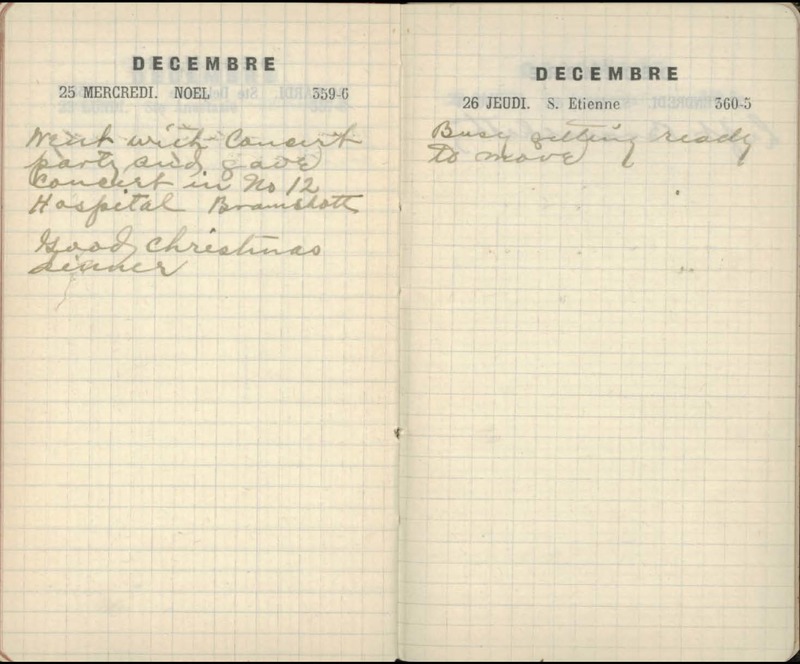 DECEMBRE
25 MERCREDI. NOEL 359-6
Went with Concert
party and gave
Concert in No 12
Hospital Bramshott
Good Christmas
dinner
DECEMBRE
26 JEUDI. S. Etienne 360-5
Busy getting ready
to move